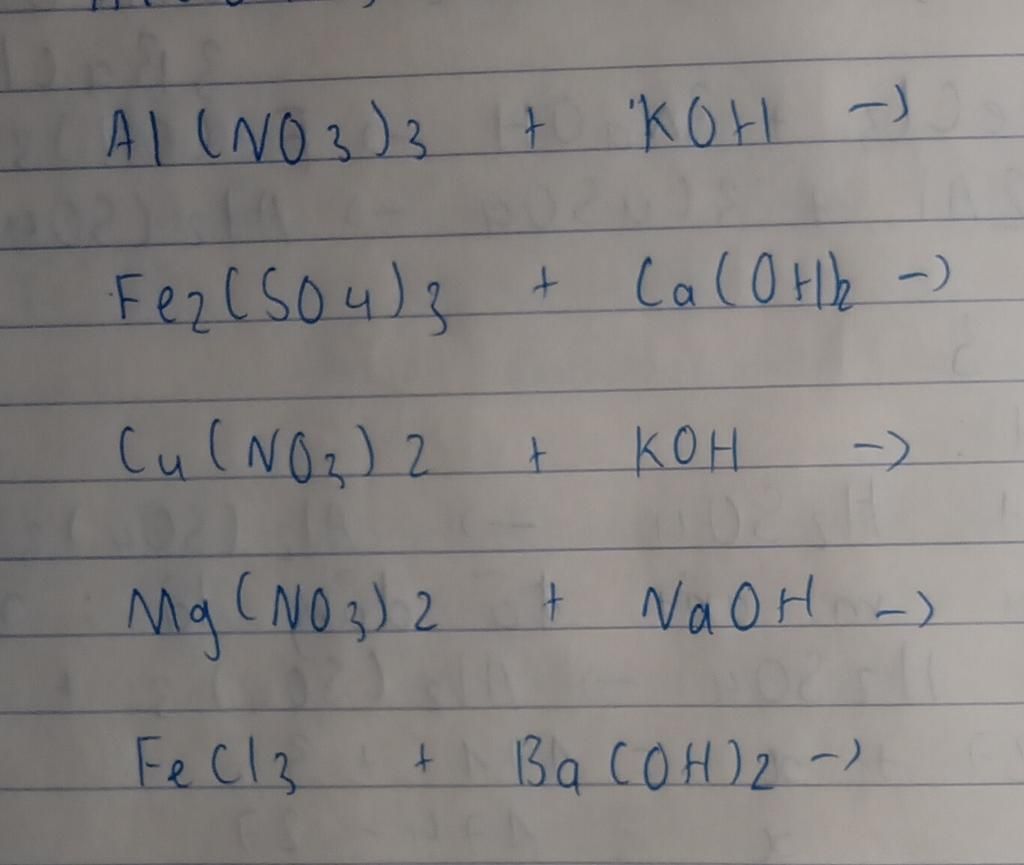 Al(NO3)3 + KOH ->
Fe2(SO4)3 + Ca(OH)2 ->
Cu(NO3)2 + KOH ->
Mg(NO3)2 + NaOH ->
FeCl3 + Ba(OH)2 ->